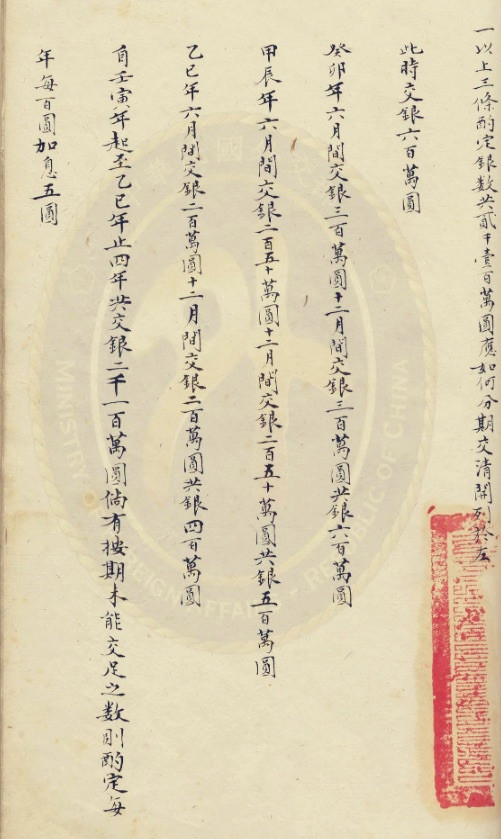 一以上三條酌定銀數共貳千壹百萬圓應如何分期交清開列於左
此時交銀六百萬圓
癸卯年六月間交銀三百萬圓十二月間交銀三百萬圓共銀六百萬圓
甲辰年六月間交銀二百五十萬圓十二月間交銀二百五十萬圓共銀五百萬圓
乙巳年六月間交銀二百萬圓十二月間交銀二百萬圓共銀四百萬圓
自壬寅年起至乙巳年止四年共交銀二千一百萬圓倘有按期未能交足之數則酌定每
年每百圓加息五圓
REPUBLIC OF CHINA